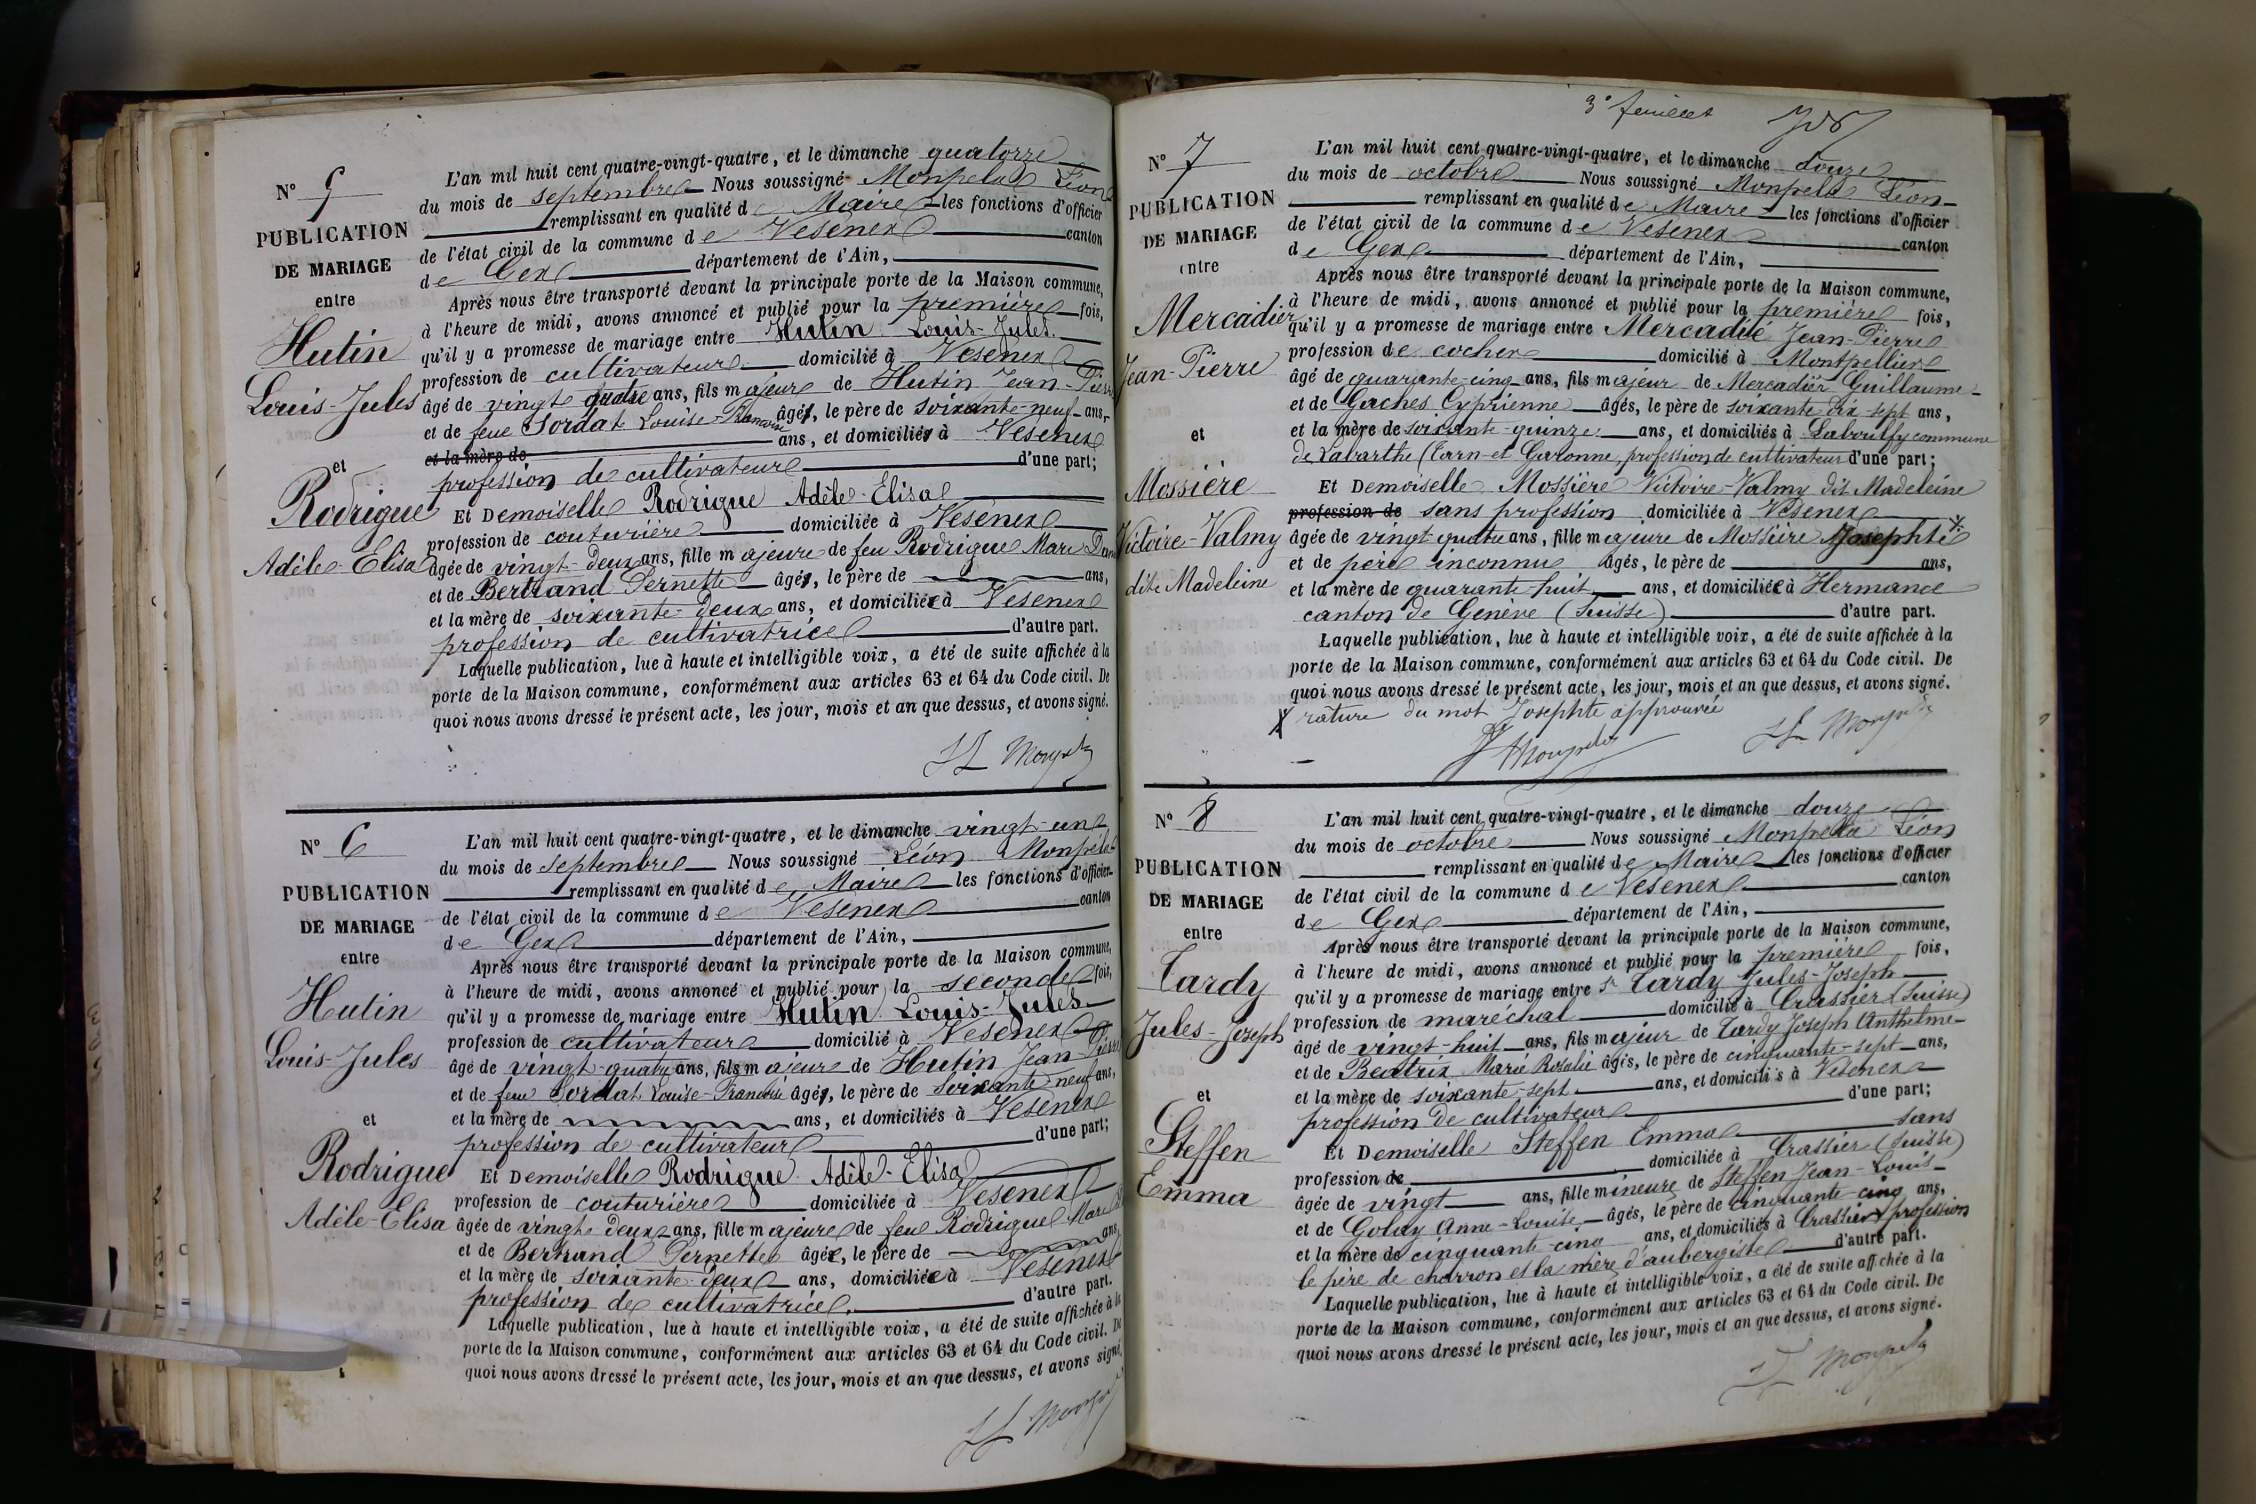 N° 5
PUBLICATION
DE MARIAGE
entre
Hutin
Louis-Jules
et
Rodrigue
Adèle-Elisa
L'an mil huit cent quatre-vingt-quatre, et le dimanche quatorze
du mois de septembre Nous soussigné Monpela Léon
remplissant en qualité de Maire les fonctions d'officier
de l'état civil de la commune de Vesenex canton
de Gex département de l'Ain,
Après nous être transporté devant la principale porte de la Maison commune,
à l'heure de midi, avons annoncé et publié pour la première fois,
qu'il y a promesse de mariage entre Hutin Louis-Jules
profession de cultivateur domicilié à Vesenex
âgé de vingt quatre ans, fils majeur de Hutin Jean-Pierre
et de feue Sordat Louise-Françoise âgés, le père de soixante-neuf ans,
et la mère de ans, et domiciliés à Vesenex
profession de cultivateur d'une part;
Et Demoiselle Rodrigue Adèle-Elisa
profession de couturière domiciliée à Vesenex
âgée de vingt-deux ans, fille majeure de feu Rodrigue Marc
et de Bertrand Pernette âgés, le père de ans,
et la mère de soixante-deux ans, et domiciliée à Vesenex
profession de cultivatrice d'autre part.
Laquelle publication, lue à haute et intelligible voix, a été de suite affichée à la
porte de la Maison commune, conformément aux articles 63 et 64 du Code civil. De
quoi nous avons dressé le présent acte, les jour, mois et an que dessus, et avons signé.
N° 6
PUBLICATION
DE MARIAGE
entre
Hutin
Louis-Jules
et
Rodrigue
Adèle-Elisa
L'an mil huit cent quatre-vingt-quatre, et le dimanche vingt-un
du mois de septembre Nous soussigné Léon Monpela
remplissant en qualité de Maire les fonctions d'officier
de l'état civil de la commune de Vesenex canton
de Gex département de l'Ain,
Après nous être transporté devant la principale porte de la Maison commune,
à l'heure de midi, avons annoncé et publié pour la seconde fois,
qu'il y a promesse de mariage entre Hutin Louis-Jules
profession de cultivateur domicilié à Vesenex
âgé de vingt-quatre ans, fils majeur de Hutin Jean-Pierre
et de feue Sordat Louise-Françoise âgés, le père de soixante neuf ans,
et la mère de ans, et domiciliés à Vesenex
profession de cultivateur d'une part;
Et Demoiselle Rodrigue Adèle-Elisa
profession de couturière domiciliée à Vesenex
âgée de vingt deux ans, fille majeure de feu Rodrigue Marc
et de Bertrand Pernette âgée, le père de ans,
et la mère de soixante-deux ans, domiciliée à Vesenex
profession de cultivatrice d'autre part.
Laquelle publication, lue à haute et intelligible voix, a été de suite affichée à la
porte de la Maison commune, conformément aux articles 63 et 64 du Code civil. De
quoi nous avons dressé le présent acte, les jour, mois et an que dessus, et avons signé.
3e feuillet
N° 7
PUBLICATION
DE MARIAGE
entre
Mercadier
Jean-Pierre
et
Mossière
Victoire-Valmy
dite Madeleine
L'an mil huit cent quatre-vingt-quatre, et le dimanche douze
du mois de octobre Nous soussigné Monpela Léon
remplissant en qualité de Maire les fonctions d'officier
de l'état civil de la commune de Vesenex canton
de Gex département de l'Ain,
Après nous être transporté devant la principale porte de la Maison commune,
à l'heure de midi, avons annoncé et publié pour la première fois,
qu'il y a promesse de mariage entre Mercadié Jean-Pierre
profession de cocher domicilié à Montpellier
âgé de quarante-cinq ans, fils majeur de Mercadier Guillaume
et de Gaches Cyprienne âgés, le père de soixante dix-sept ans,
et la mère de soixante-quinze ans, et domiciliés à Laboulfy commune
de Labarthe (Tarn-et-Garonne, profession de cultivateur d'une part;
Et Demoiselle Mossière Victoire-Valmy dit Madeleine
profession de sans profession domiciliée à Vesenex
âgée de vingt-quatre ans, fille majeure de Mossière Josephte
et de père inconnu âgés, le père de ans,
et la mère de quarante-huit ans, et domiciliée à Hermance
canton de Genève (Suisse) d'autre part.
Laquelle publication, lue à haute et intelligible voix, a été de suite affichée à la
porte de la Maison commune, conformément aux articles 63 et 64 du Code civil. De
quoi nous avons dressé le présent acte, les jour, mois et an que dessus, et avons signé.
X rature du mot Josephte approuvée
N° 8
PUBLICATION
DE MARIAGE
entre
Tardy
Jules-Joseph
et
Steffen
Emma
L'an mil huit cent quatre-vingt-quatre, et le dimanche douze
du mois de octobre Nous soussigné Monpela Léon
remplissant en qualité de Maire les fonctions d'officier
de l'état civil de la commune de Vesenex canton
de Gex département de l'Ain,
Après nous être transporté devant la principale porte de la Maison commune,
à l'heure de midi, avons annoncé et publié pour la première fois,
qu'il y a promesse de mariage entre Sr Tardy Jules-Joseph
profession de maréchal domicilié à Crassier (Suisse)
âgé de vingt-huit ans, fils majeur de Tardy Joseph Anthelme
et de Beatrix Marie Rosalie âgés, le père de cinquante-sept ans,
et la mère de soixante-sept ans, et domiciliés à Vesenex
profession de cultivateur d'une part;
Et Demoiselle Steffen Emma sans
profession de domiciliée à Crassier (Suisse)
âgée de vingt ans, fille mineure de Steffen Jean-Louis
et de Golay Anne-Louise âgés, le père de cinquante-cinq ans,
et la mère de cinquante-cinq ans, et domiciliés à Crassier profession
le père de charron et la mère d'aubergiste d'autre part.
Laquelle publication, lue à haute et intelligible voix, a été de suite affichée à la
porte de la Maison commune, conformément aux articles 63 et 64 du Code civil. De
quoi nous avons dressé le présent acte, les jour, mois et an que dessus, et avons signé.